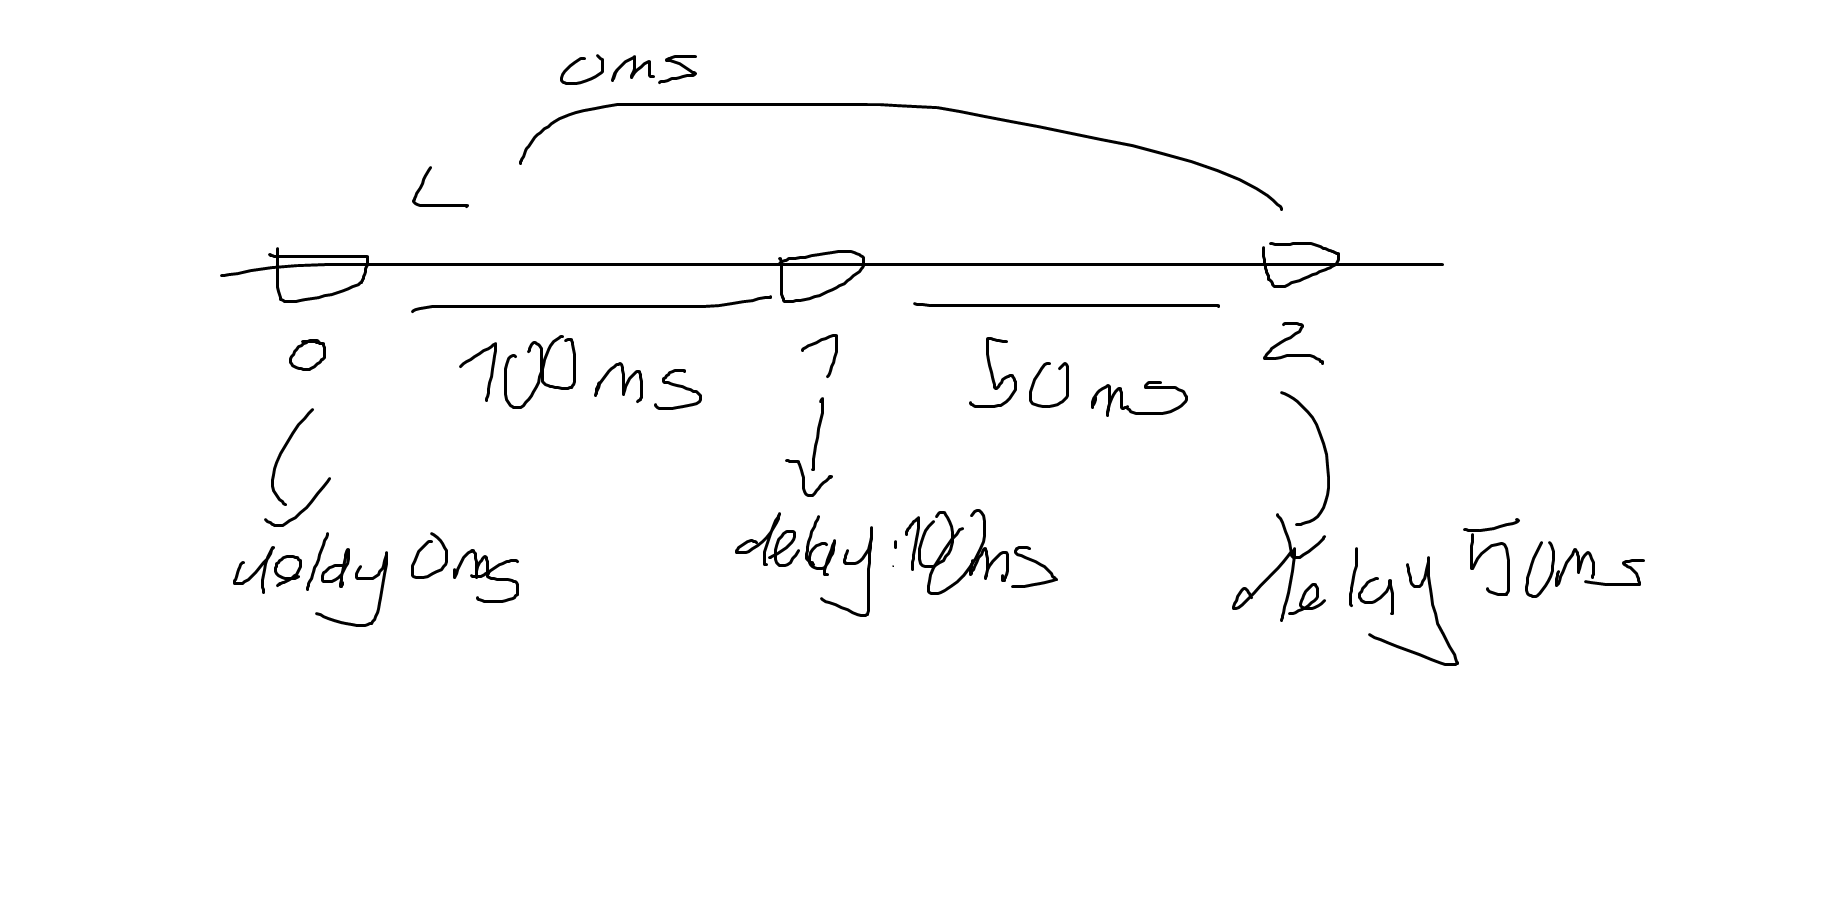 0ms
0
100ms
1
50ms
2
delay 0ms
delay:100ms
delay 50ms